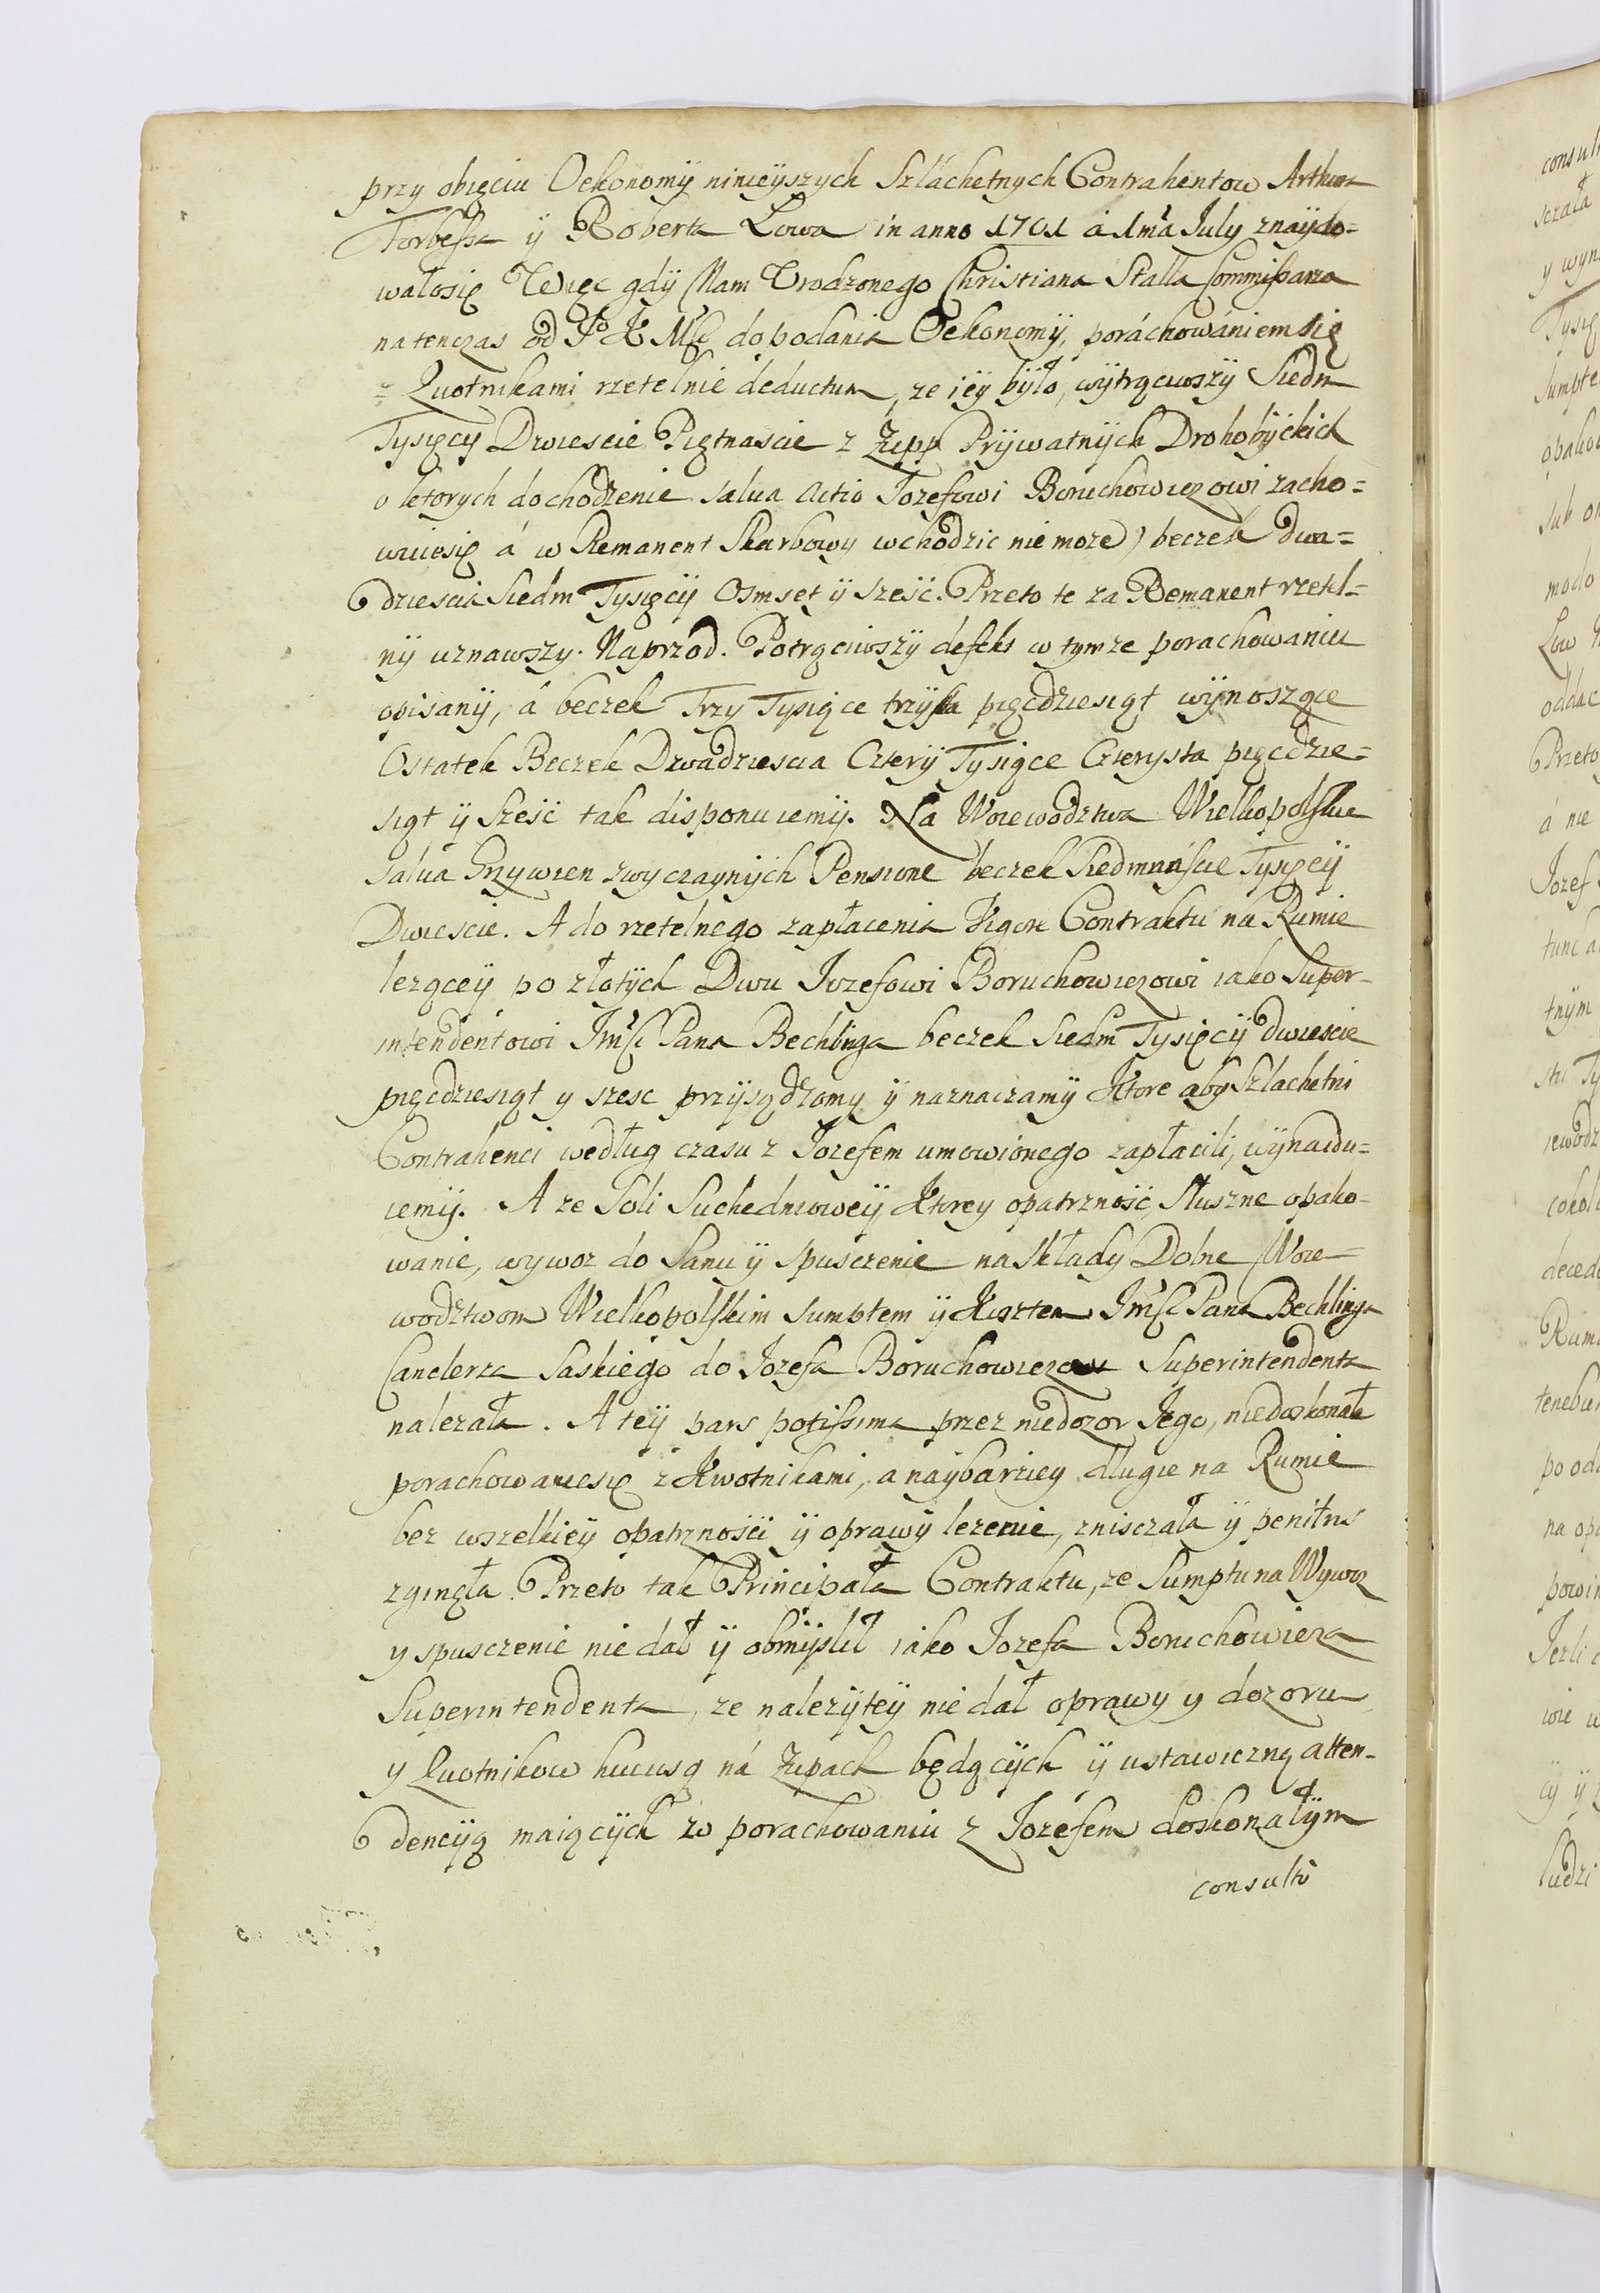 przy obięciu Oekonomÿ ninieÿszych Szláchetnych Contrahentow Arthura
Forbessa ÿ Roberta Lowa in anno 1701 á 1mâ July znaÿdo=
wałosię Więc gdÿ Nam Urodzonego Christiana Stalla Commissarza
natenczas od J K Mśc do podania Oekonomÿ, poráchowániem się
z Quotnikami rzetelnie deductum, ze ieÿ bÿło, wÿtrąciwszÿ Siedm
Tysięcÿ Dwiescie Piętnascie z Zupp Prÿwatnÿch Drohobÿckich
o ktorych dochodzenie salva actio Jozefowi Boruchowiczowi zacho=
wuiesię á w Remanent Skarbowy wchodzic nie moze) beczek dwa=
dziescia Siedm Tysięcÿ Osmset ÿ sześć. Przeto te za Remanent rzetel=
nÿ uznawszy. Naprzod. Potrąciwszÿ defekt w tymze porachowaniu
opisanÿ, á beczek Trzy Tysiące trzÿsta pięcdziesiąt wÿnoszące
Ostatek Beczek Dwadziescia Czterÿ Tysiące Czterysta pięcdzie=
siąt ÿ sześć tak disponuiemÿ. Na Woiewodztwa Wielkopolskie
salva Grzywien zwyczaynÿch Pensione beczek Siedmnáscie Tysięcÿ
Dwiescie. A do rzetelnego zapłacenia Vigore Contraktu ná Rumie
lezącÿ po złotÿch Dwu Jozefowi Boruchowiczowi iako Super-
intendentowi Jmść Pana Bechlinga beczek Siedm Tysięcÿ dwiescie
pięcdziesiąt y szesc przÿsądzamy ÿ naznaczamÿ Ktore aby Szlachetni
Contrahenci według czasu z Jozefem umowionego zapłacili, wÿnaidu=
iemÿ. A ze Soli Suchedniowëÿ Ktorey opatrzność, słuszne opako-
wanie, wywoz do Sanu ÿ spusczenie na Składy Dolne Woie-
wodztwom Wielkopolskim sumptem ÿ Kosztem Jmść Pana Bechlinga
Canclerza Saskiego do Jozefa Boruchowicza Superintendenta
nalezała. A teÿ pars potissima przez niedozor Jego, niedoskonałe
porachowaniesię z Kwotnikami, a naÿbarziey dlugie na Rumie
bez wszelkieÿ opatrznośći ÿ oprawÿ lezenie, znisczała ÿ penitus
zginęła. Przeto tak Principała Contraktu, ze Sumptu na Wywoz
y spusczenie nie dał ÿ obmÿslił iako Jozefa Boruchowicza
Superintendenta, ze nalezÿteÿ nie dał oprawy y dozoru
y Quotnikow hucusq ná Zupach będącÿch ÿ ustawiczną atten-
dencÿą maiącÿch w porachowaniu z Jozefem doskonałÿm
consulto